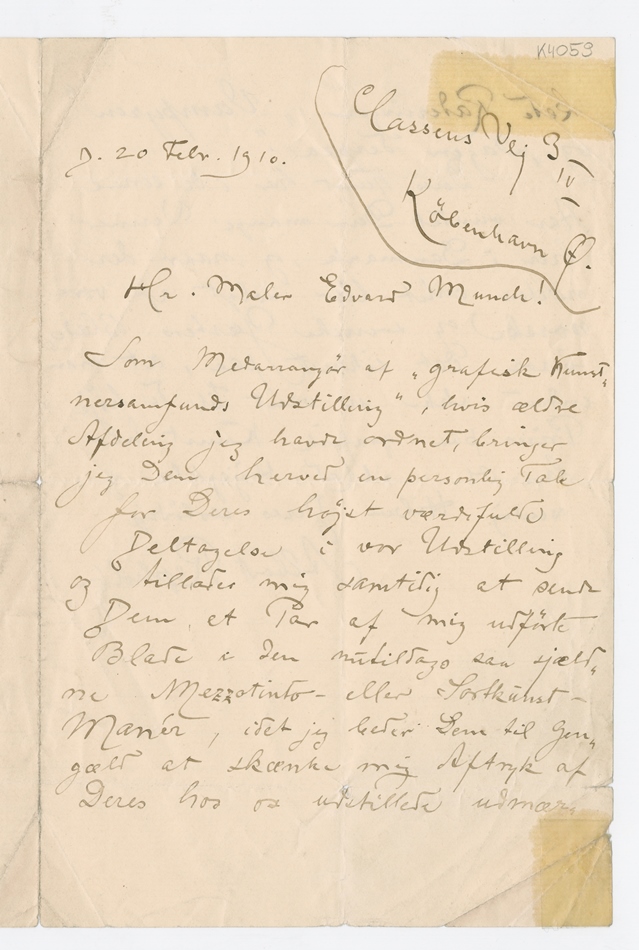 K4059
Classens Vej 3 IV
København Ø.
D. 20 Febr. 1910.
Hr. Maler Edvard Munch!
Som Medarrangör af „grafisk Kunst„
nersamfunds Udstilling", hvis ældre
Afdeling jeg havde ordnet, bringer
jeg Dem herved en personlig Tak
for Deres höjst værdifulde
Deltagelse i vor Udstilling
og tillader mig samtidig at sende
Dem et Par af mig udförte
Blade i den nutildags saa sjæld„
ne Mezzotinto- eller Sortkunst-
Manér, idet jeg beder Dem til Gen„
gæld at skænke mig Aftryk af
Deres hos os udstillede udmær„